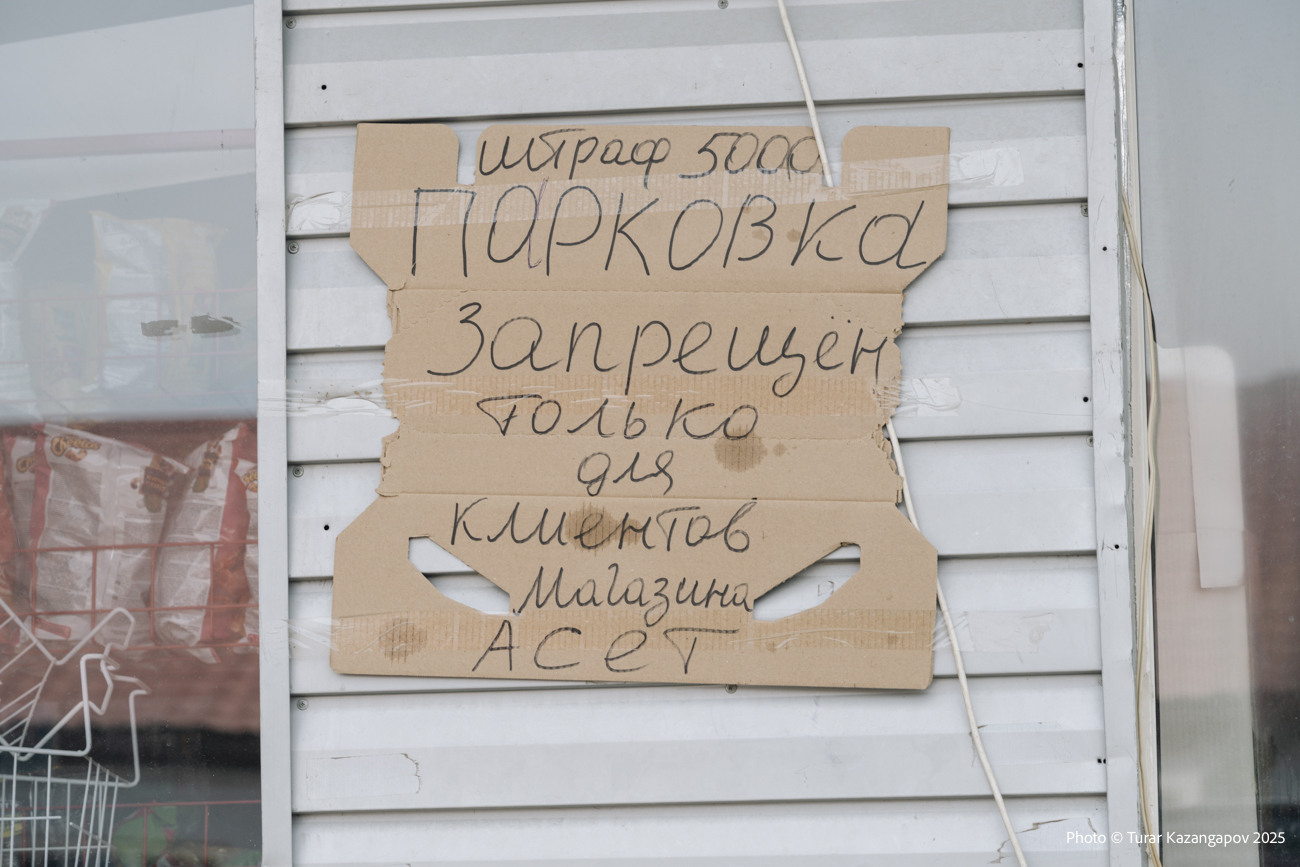 штраф 5000
ПАРКОВКА
Запрещён
только
для
клиентов
Магазина
АСеТ
Photo © Turar Kazangapov 2025